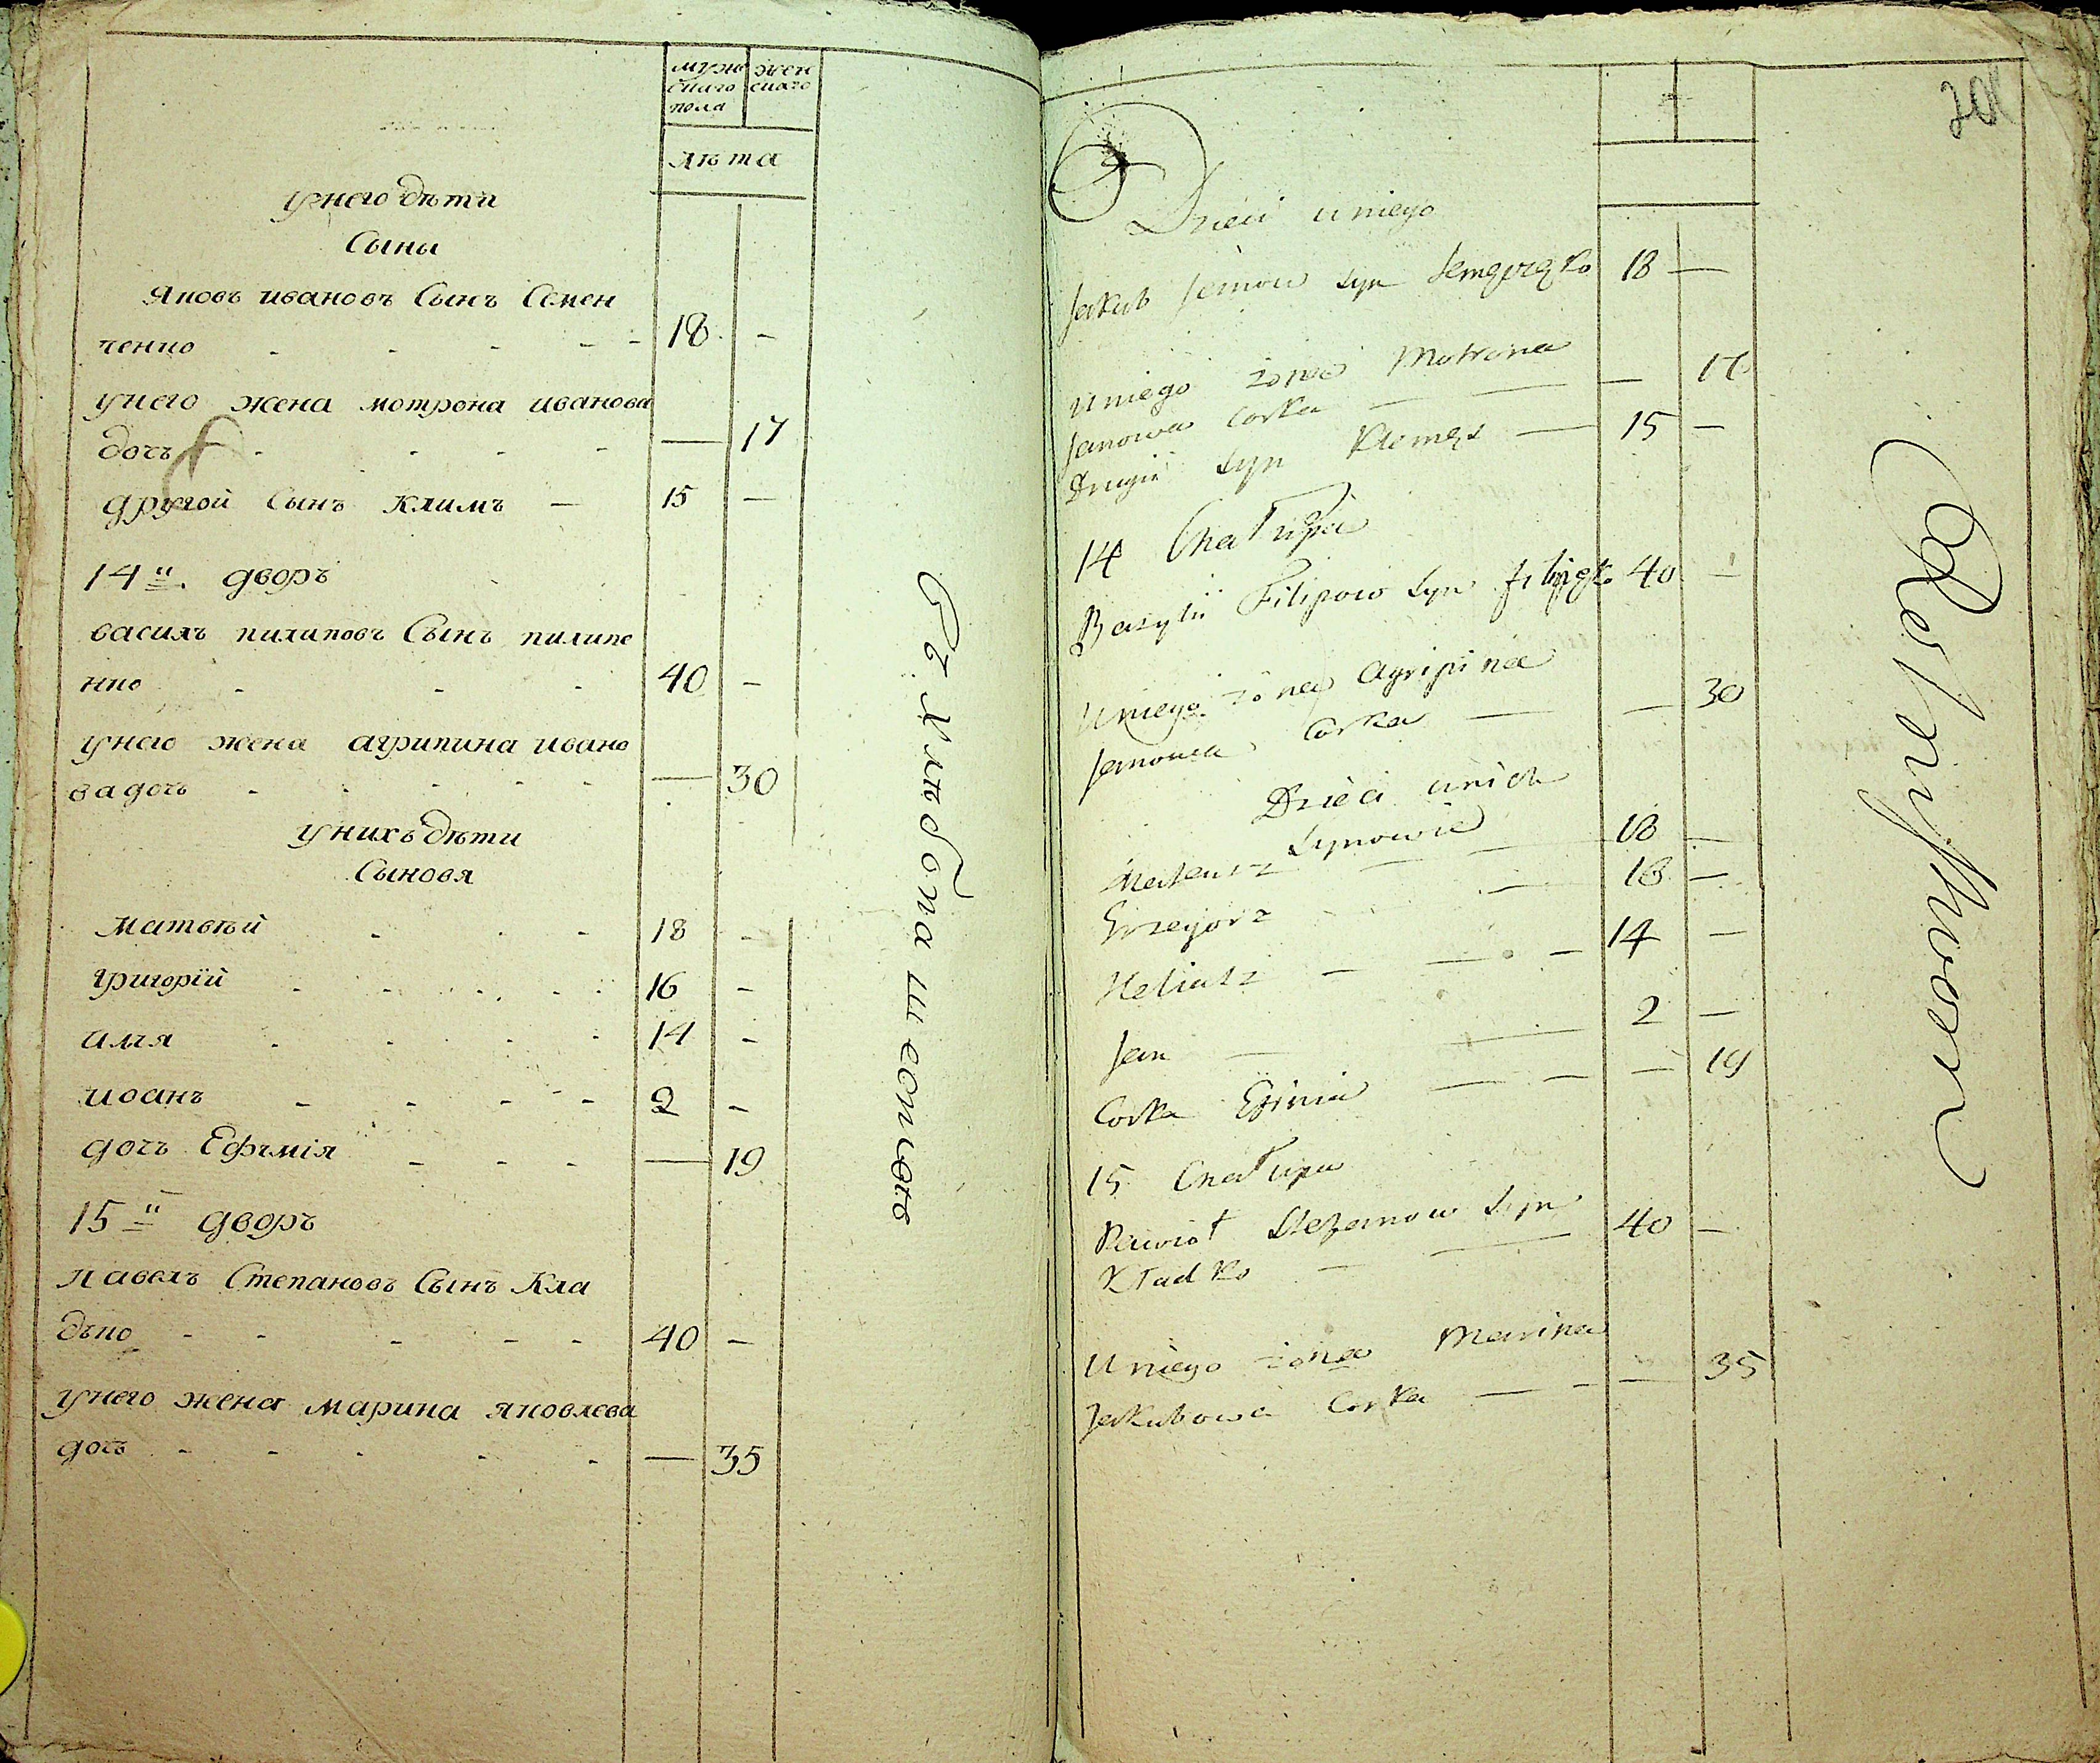 мужескаго пола
женскаго
лѣта
унего дѣти
Сыны
Яковъ ивановъ Сынъ Семен
ченко - - - - - 18. -
унего жена мотрона иванова
дочь - - - - — 17
другой Сынъ Климъ — 15 —
14й. дворъ
василь пилиповъ Сынъ пилипе
нко - - - 40 -
унего жена агрипина ивано
ва дочь - - - - — 30
унихъ дѣти
Сыновя
Матвѣй - - - 18 -
григорій - - - - - 16 -
илья - - - - 14 -
иоанъ - - - - 2 -
дочь Ефѣмія - - - — 19
15й дворъ
павелъ Степановъ Сынъ Кла
дько - - - - - 40 -
унего жена марина яковлева
дочь - - - - - — 35
201
Dzieci uniego
Jakub Janow Syn 18 —
Uniego zona Matrona
Janowa Corka — — — 17
Drugii Syn Klemęs — 15 —
14 Chałupa
Bazylii Filipow Syn 40 —
Uniego zona Agripina
Janowa Corka — — 30
Dzieci unich
Synowie
Mateusz — — 18 —
Grzegorz — 16 —
Heliasz — — — 14 —
Jan — — 2 —
Corka Efimia — — — 19
15 Chałupa
Paweł Stefanow Syn
Kładko — — 40 —
Uniego zona Marina
Jakubowa Corka — - — 35